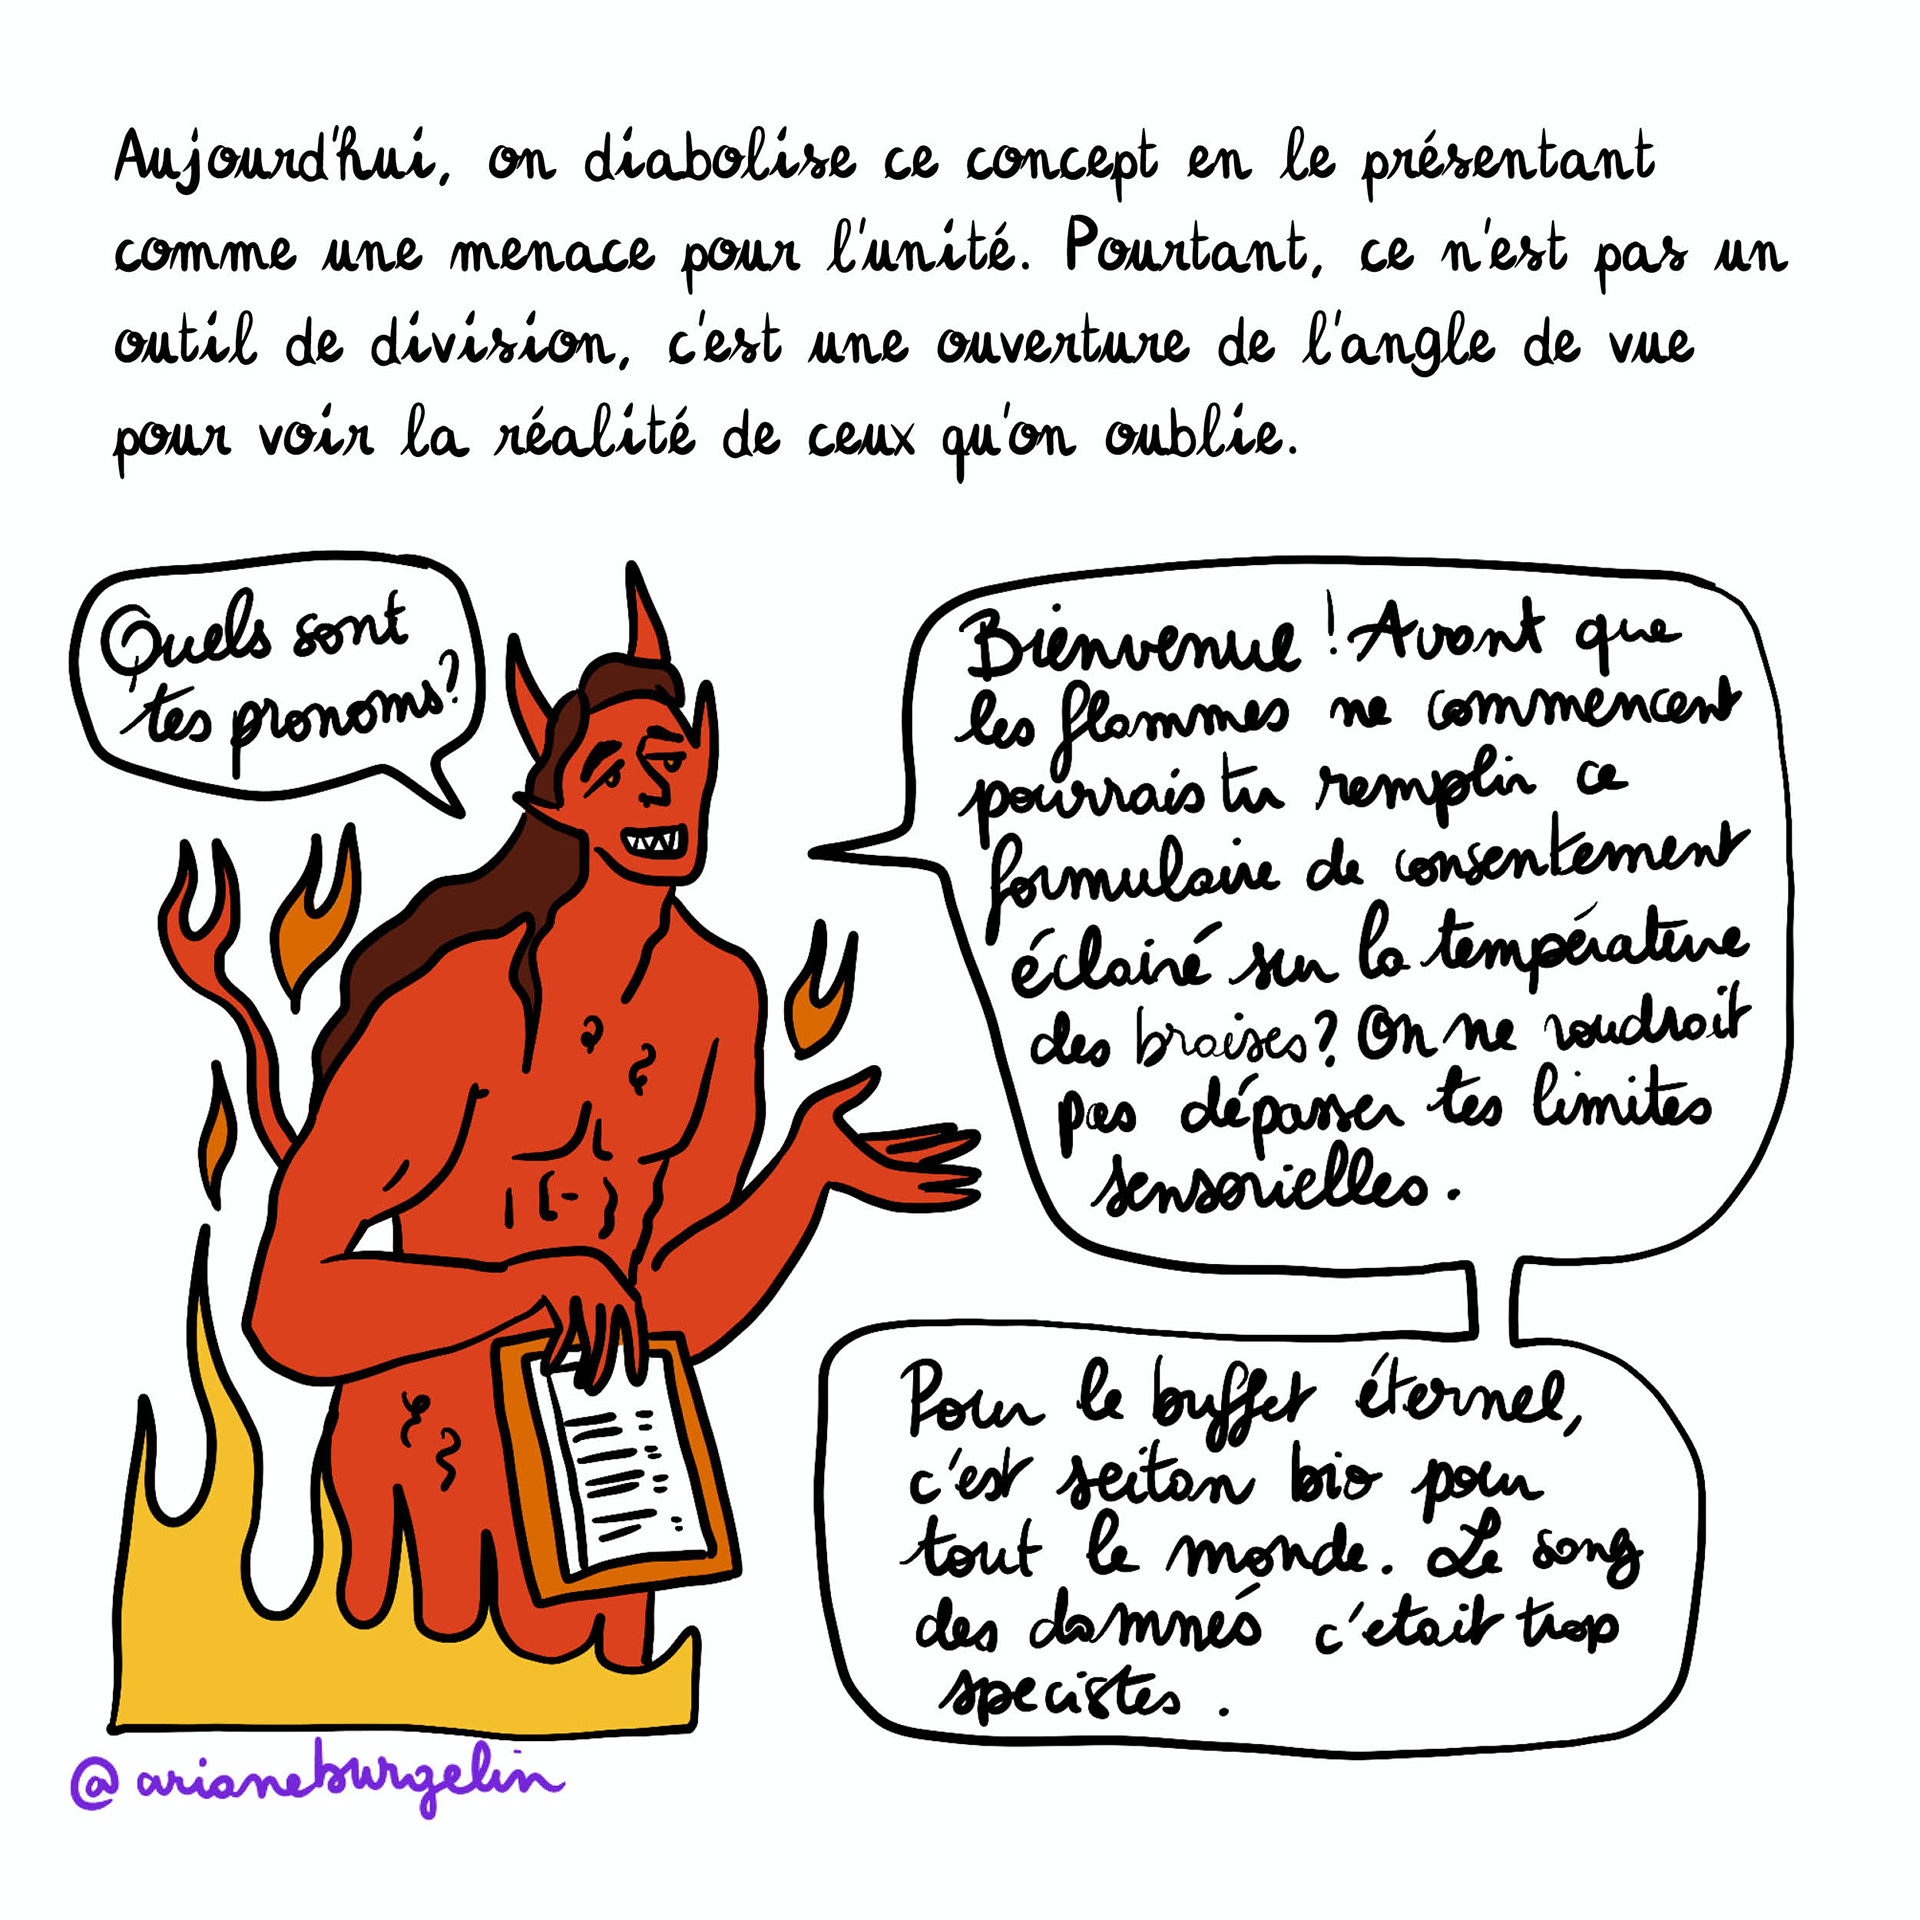 Aujourd'hui, on diabolise ce concept en le présentant
comme une menace pour l'unité. Pourtant, ce n'est pas un
outil de division, c'est une ouverture de l'angle de vue
pour voir la réalité de ceux qu'on oublie.
Quels sont
tes pronoms?
Bienvenue ! Avant que
les flammes ne commencent
pourrais tu remplir ce
formulaire de consentement
éclairé sur la température
des braises? On ne voudrait
pas dépasser tes limites
sensorielles.
Pour le buffet éternel,
c'est seitan bio pour
tout le monde. Le sang
des damnés c'etait trop
specistes.
@arianeburgelin